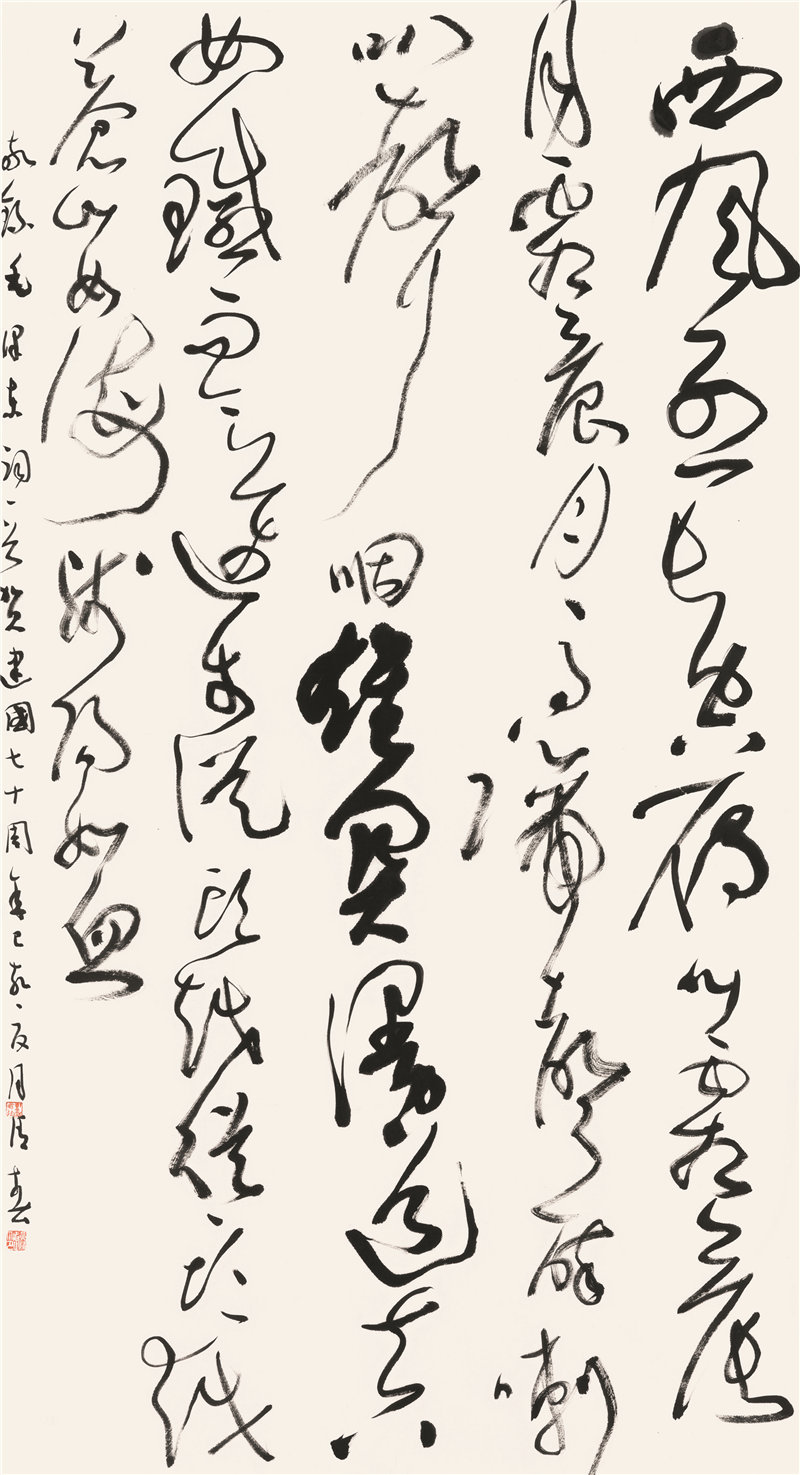 西風烈長空雁叫霜晨
月霜晨月馬蹄聲碎喇
叭聲咽雄關漫道真
如鐵而今邁步從頭越從頭越
蒼山如海殘陽如血
敬錄毛澤東詞一首賀建國七十周年己亥